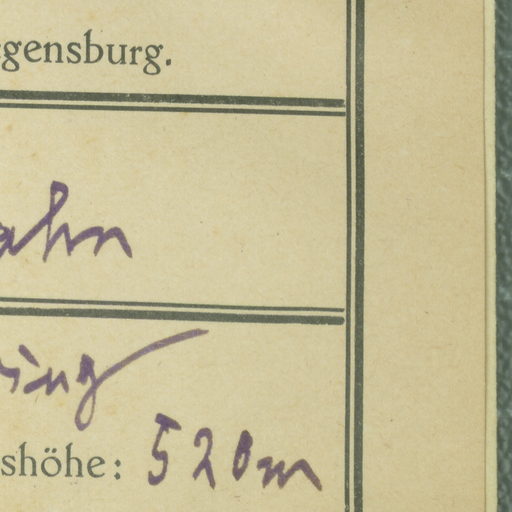 egensburg.
ahn
ing
shöhe: 520m